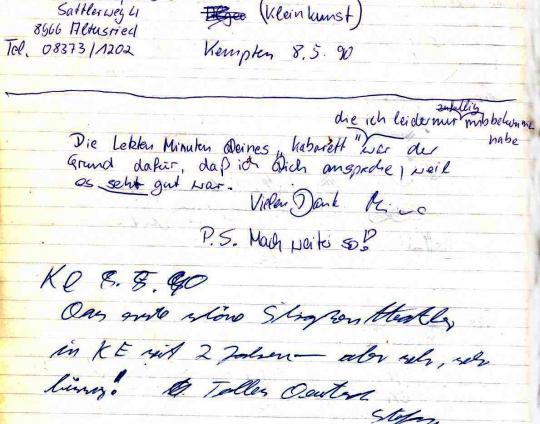 Sattlerweg 4
8966 Altusried (Kleinkunst)
Tel. 08373/1202 Kempten 8.5.90
zufällig
die ich leider nur mitbekommen
habe
Die letzten Minuten Deines "Kabarett" war der
Grund dafür, daß ich Dich anspreche, weil
es sehr gut war.
Vielen Dank
P.S. Mach weiter so!?
KE 8.5.90
Das erste schöne Straßentheater
in KE seit 2 Jahren – aber sehr, sehr
Tolles
Stefan